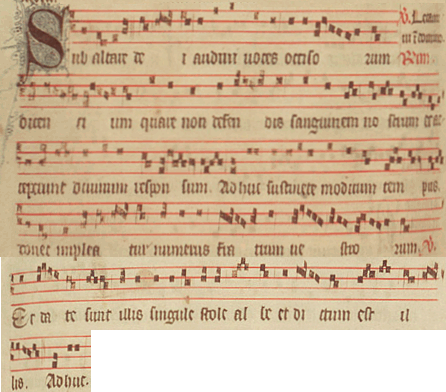 Sub altare de i audiui uoces occiso rum
dicen ti um quare non defen dis sanguinem no strum et ac
ceperunt diuinum respon sum. Ad huc sustinete modicum tem pus.
donec implea tur numerus fra trum ue stro rum. V.
Et da te sunt illis singule stole al be et di ctum est il
lis. Adhuc.